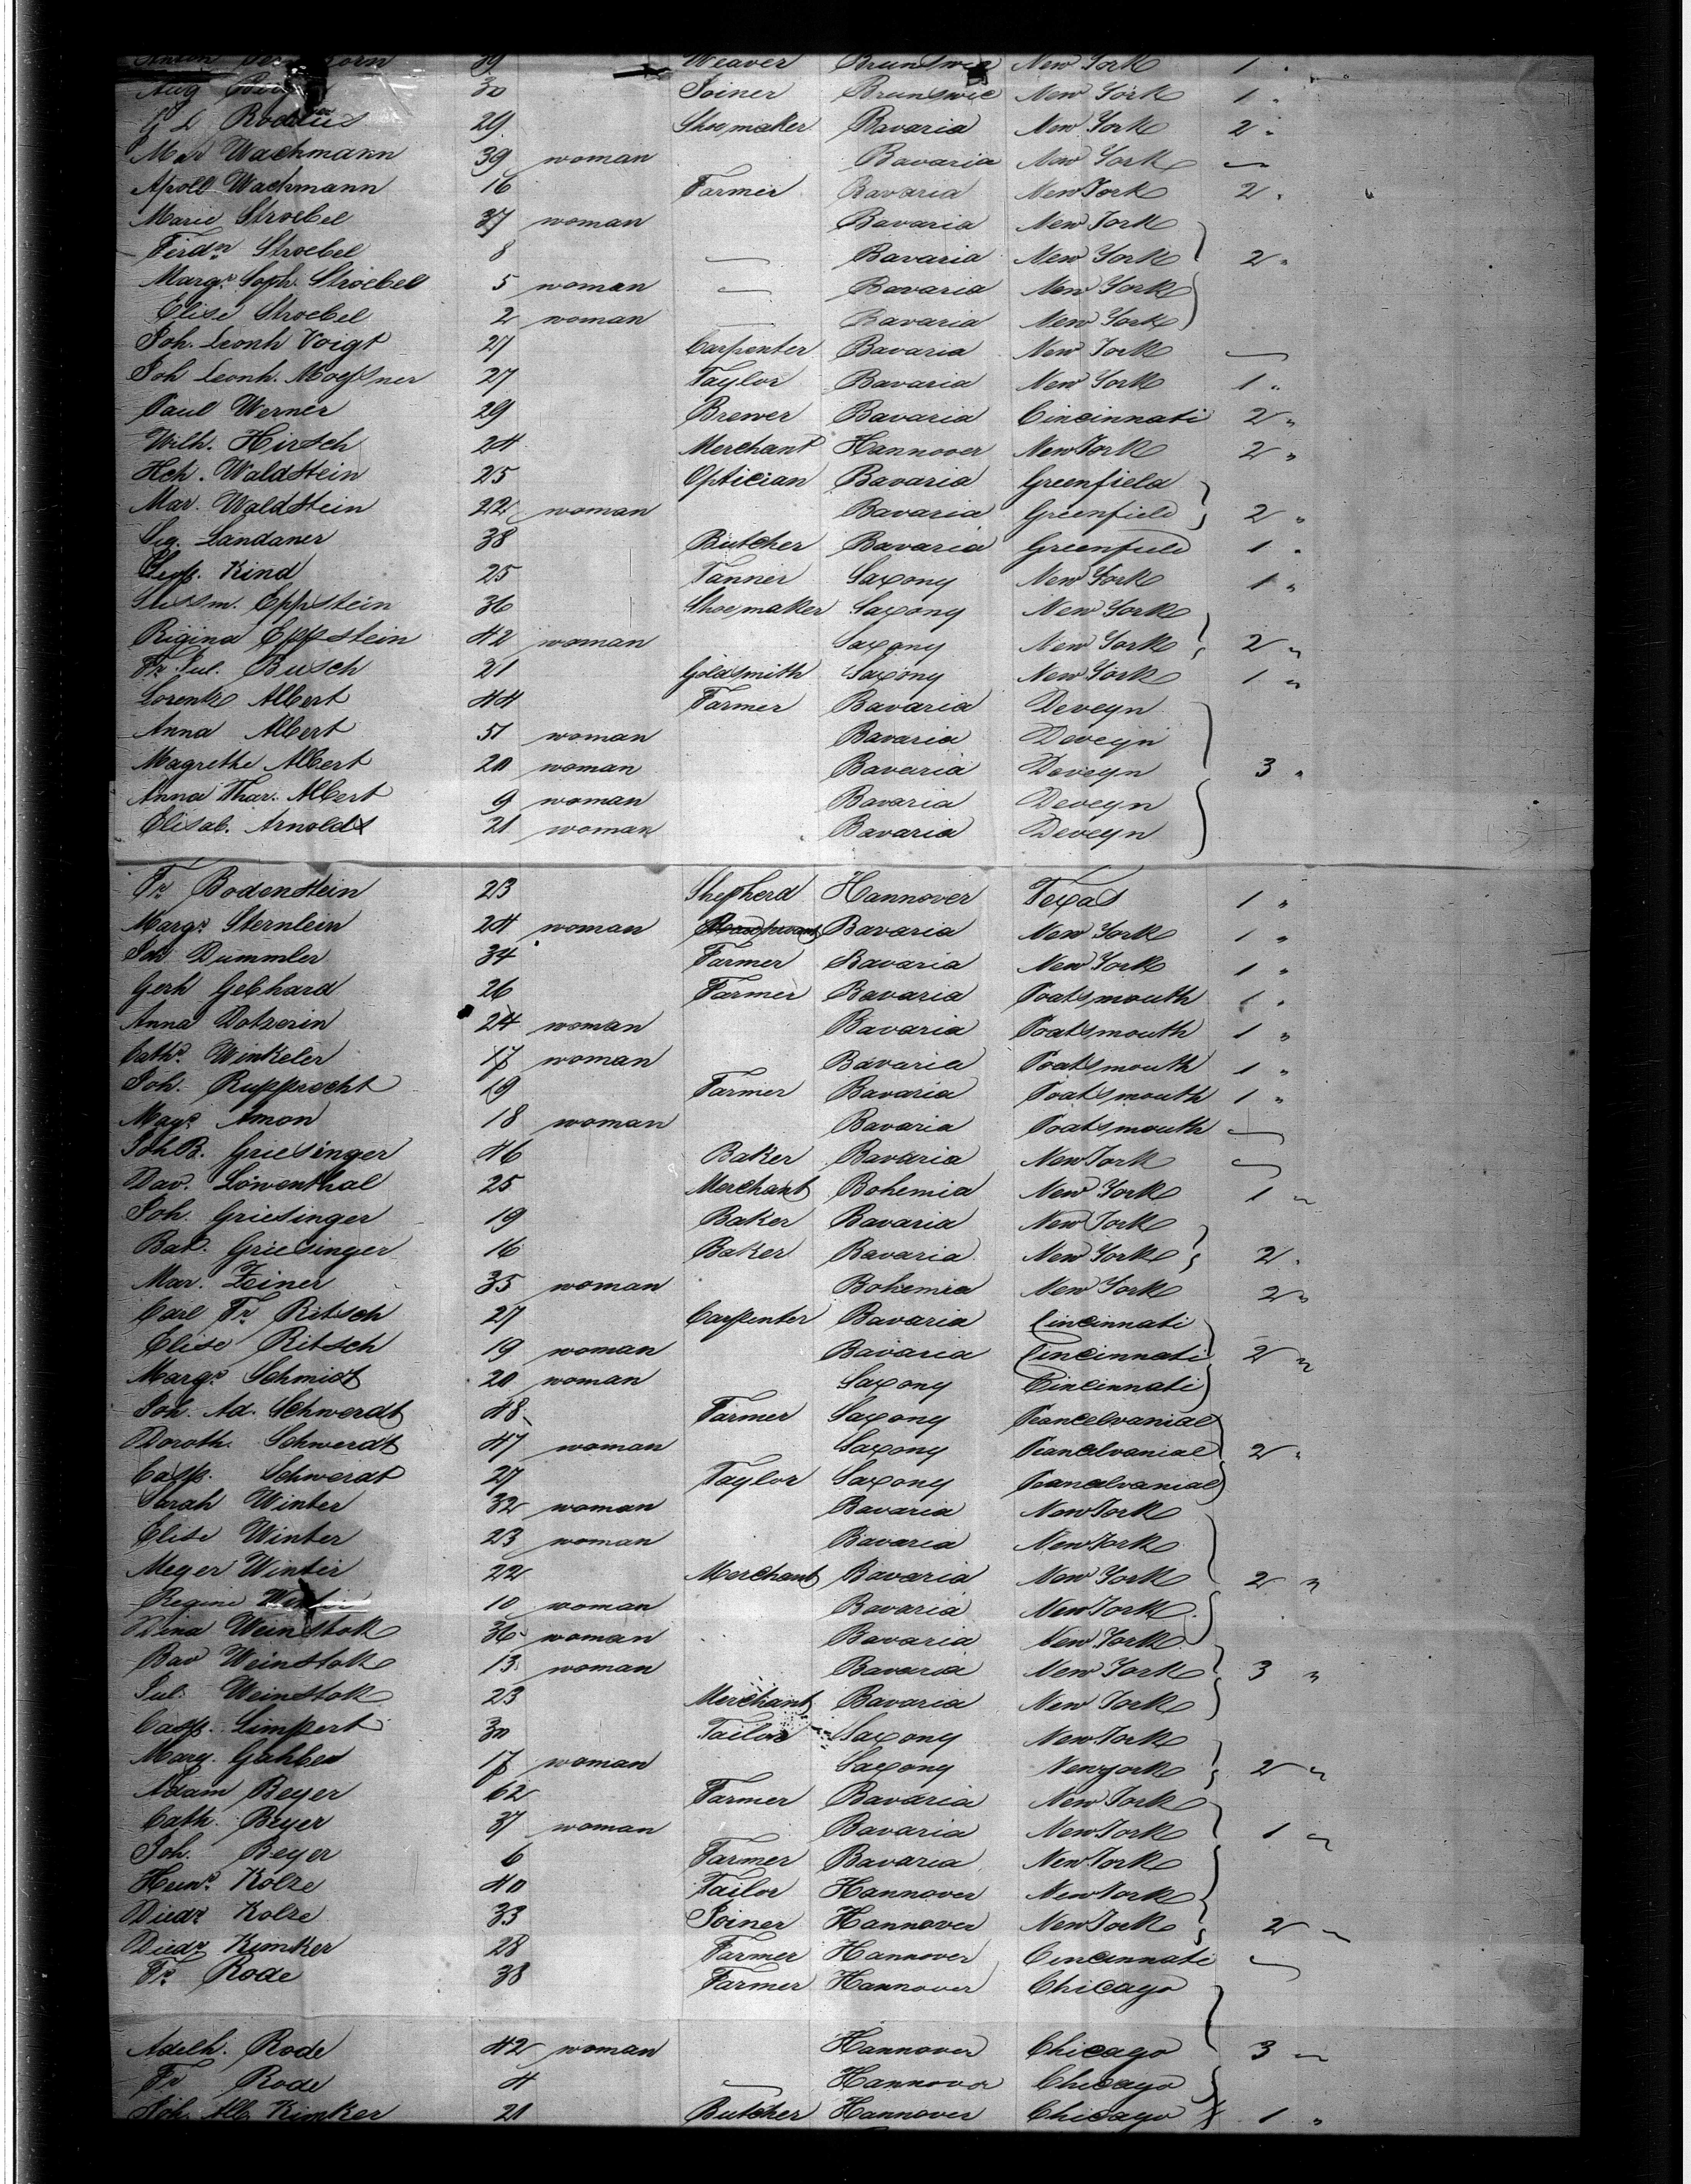 Anton 39 Weaver Brunswic New York 1 "
Aug 30 Joiner Brunswic New York 1 "
Rodelius 29 Shoemaker Bavaria New York 2 "
Mar Wachmann 39 woman Bavaria New York —
Apoll Wachmann 16 Farmer Bavaria New York 2 "
Marie Stroebel 37 woman Bavaria New York
Ferdn. Stroebel 8 — Bavaria New York 2 "
Margr. Soph. Stroebel 5 woman — Bavaria New York
Elise Stroebel 2 woman — Bavaria New York
Joh. Leonh Voigt 27 Carpenter Bavaria New York —
Joh Leonh. Moessner 27 Taylor Bavaria New York 1 "
Paul Werner 29 Brewer Bavaria Cincinnati 2 "
Wilh. Hirsch 24 Merchant Hannover New York 2 "
Hch. Waldstein 25 Optician Bavaria Greenfield
Mar. Waldstein 22 woman Bavaria Greenfield 2 "
Sig. Landaner 38 Butcher Bavaria Greenfield 1 "
Kind 25 Tanner Saxony New York 1 "
Sussm. Eppstein 36 Shoemaker Saxony New York
Rigina Eppstein 42 woman Saxony New York 2 "
Fr. Jul. Busch 21 Goldsmith Saxony New York 1 "
Lorentz Albert 44 Farmer Bavaria Deveyn
Anna Albert 51 woman Bavaria Deveyn
Magrethe Albert 20 woman Bavaria Deveyn 3 "
Anna Thar. Albert 9 woman Bavaria Deveyn
Elisab. Arnoldt 21 woman Bavaria Deveyn
Fr. Bodenstein 23 Shepherd Hannover Texas 1 "
Margr. Sternlein 24 woman Bavaria New York 1 "
Joh Dummler 34 Farmer Bavaria New York 1 "
Gerh Gebhard 26 Farmer Bavaria Poatsmouth 1 "
Anna Dotzerin 24 woman Bavaria Poatsmouth 1 "
Cathr. Winkeler 17 woman Bavaria Poatsmouth 1 "
Joh. Rupprecht 19 Farmer Bavaria Poatsmouth 1 "
Magr. Amon 18 woman Bavaria Poatsmouth —
Joh B. Griesinger 46 Baker Bavaria New York —
Dav. Löwenthal 25 Merchant Bohemia New York 1 "
Joh. Griesinger 19 Baker Bavaria New York
Bat. Griesinger 16 Baker Bavaria New York 2 "
Mar. Zeiner 35 woman Bohemia New York 2 "
Carl Fr. Ritsch 27 Carpenter Bavaria Cincinnati
Elise Ritsch 19 woman Bavaria Cincinnati 2 "
Margr. Schmidt 20 woman Saxony Cincinnati
Joh. Ad. Schwerdt 48 Farmer Saxony Peancelvanial
Doroth. Schwerdt 47 woman Saxony Peancelvanial 2 "
Casp. Schwerdt 27 Taylor Saxony Peancelvanial
Sarah Winter 32 woman Bavaria New York
Elise Winter 23 woman Bavaria New York
Meyer Winter 22 Merchant Bavaria New York 2 "
Regine Winter 10 woman Bavaria New York
Dina Weinstok 36 woman Bavaria New York
Bav Weinstok 13 woman Bavaria New York 3 "
Jul. Weinstok 23 Merchant Bavaria New York
Casp. Limpert 30 Tailor Saxony New York
Marg. Gahber 17 woman Saxony Newyork 2 "
Adam Beyer 62 Farmer Bavaria New York
Cath. Beyer 37 woman Bavaria New York 1 "
Joh. Beyer 6 Farmer Bavaria New York
Heinr. Kolze 40 Tailor Hannover New York
Diedr. Kolze 33 Joiner Hannover New York 2 "
Diedr. Kimker 28 Farmer Hannover Cincinnati —
Fr. Rode 38 Farmer Hannover Chicago
Adelh. Rode 42 woman Hannover Chicago 3 "
Fr. Rode 4 — Hannover Chicago
Joh. Alb. Kimker 21 Butcher Hannover Chicago 1 "